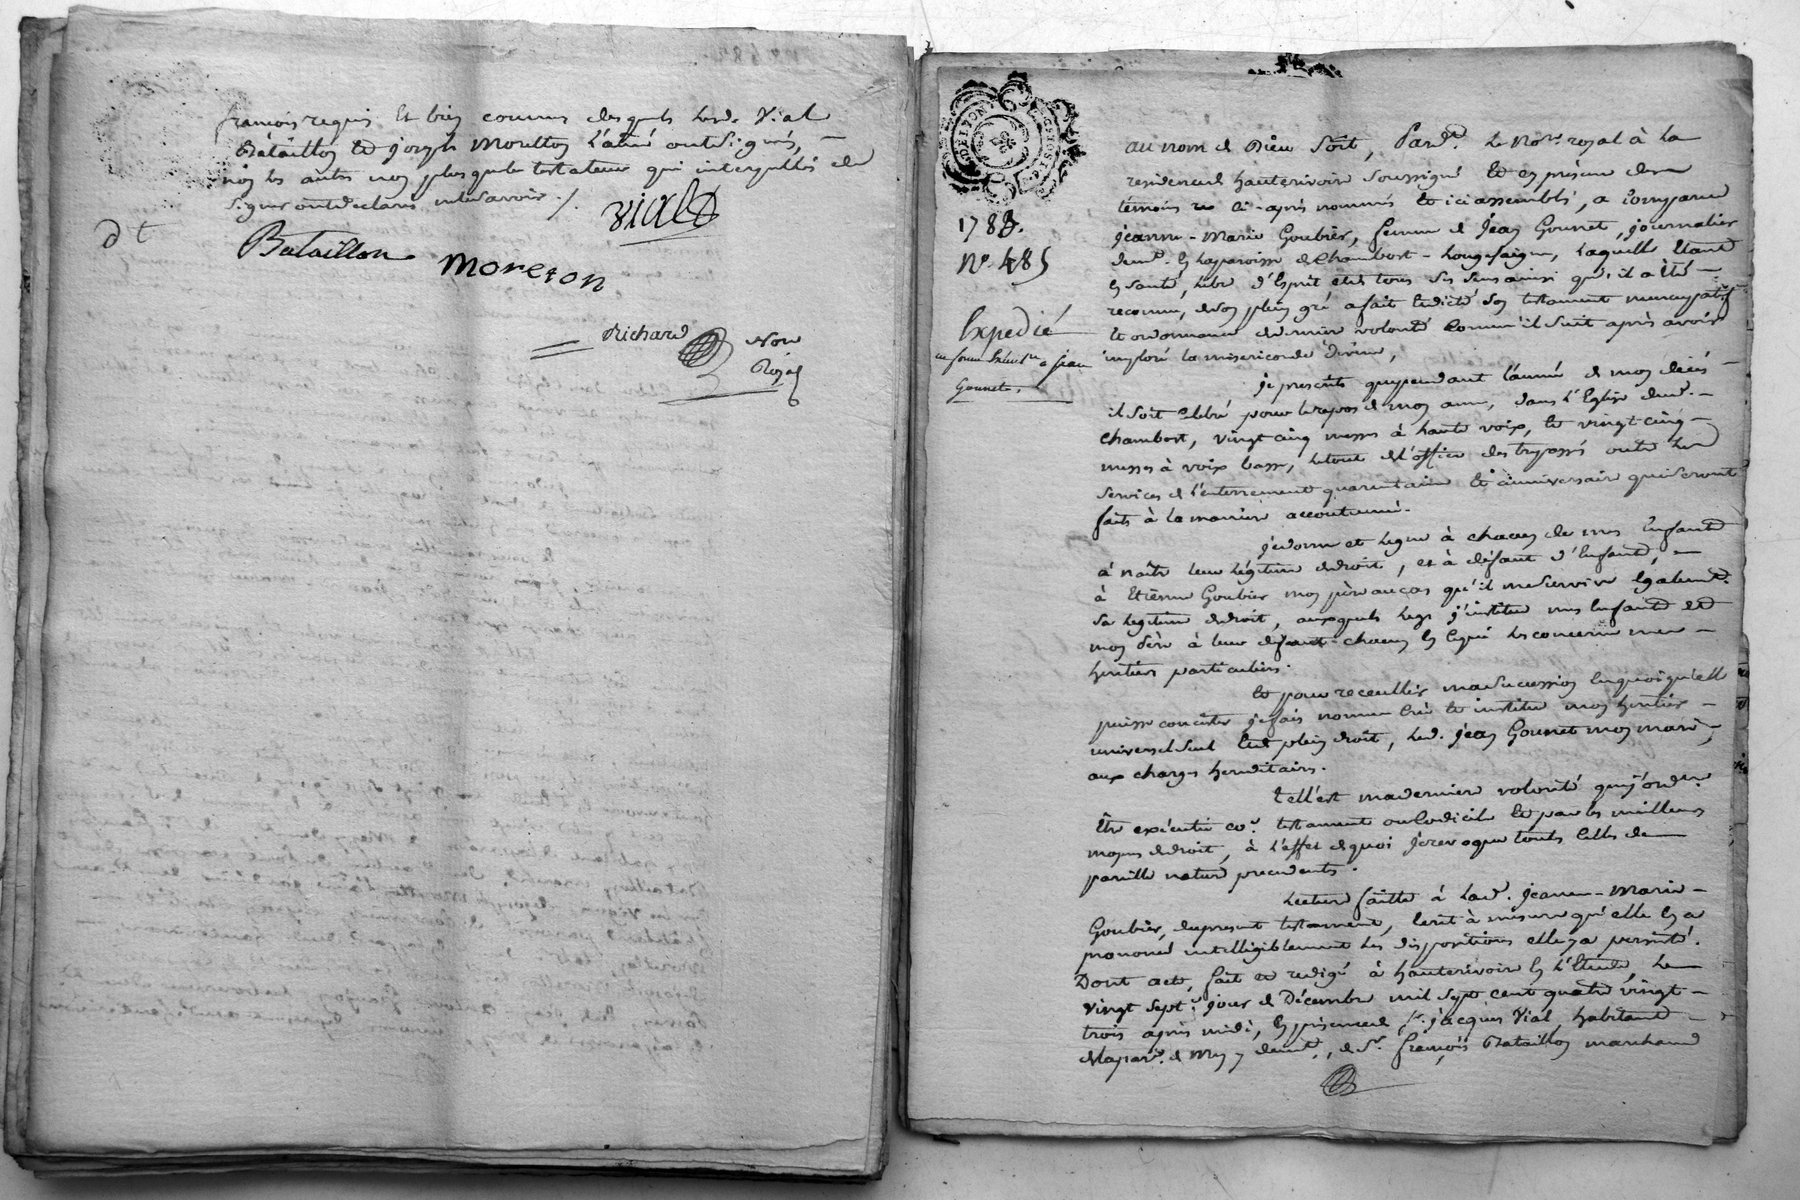 françois requis et bien connus desquels lesd. Vial
Bataillon et joseph Moretton l'ainé ont signés,
non les autres non plus que le testateur qui interpellés de
signer ont déclaré ne le savoir ./.
Vial
Bataillon Moreton
Richard Nore
Royal
GEN. LYON
1783.
N.º 485
Expedié
en forme a jean
Gounet.
au nom de Dieu soit, Pard.t le No.re royal à la
residence d'hauterivoire soussigné et en présence des
témoins ci-après nommés et ici assemblés, a comparu
jeanne-Marie Goubier, femme de jean Gounet, journalier
dem.t en la parroisse de Chambost-Longesaigne, laquelle étant
en santé, libre d'esprit, et de tous ses sens ainsi qu'il a été
reconnu, de son plein gré a fait et dicté son testament nuncupatif
et ordonnance de derniere volonté comm'il suit après avoir
imploré la misericorde divine,
je prescris que pendant l'année de mon décès
il soit celebré pour le repos de mon ame, dans l'Eglise dud.
Chambost, vingt cinq messes à haute voix, et vingt cinq
messes à voix basse, le tout de l'office des trepassés outre les
services de l'enterrement quarantaine et anniversaire qui seront
faits à la maniere accoutumée.
je donne et legue à chacun de mes Enfants
à naître leur légitime de droit, et à défaut d'Enfants,
à Etienne Goubier mon père au cas qu'il me survive égalem.t
sa legitime de droit, auxquels legs j'institue mes Enfants et
mon Père à leur défaut chacun en ce qui les concerne mes
heritiers particuliers.
et pour recueillir ma succession en quoi qu'elle
puisse consister je fais nomme crée et institue mon heritier
universel seul et de plein droit, led. jean Gounet mon mari,
aux charges hereditaires.
tell'est ma derniere volonté que j'ord.ne
être exécutée co.e testament ou codicile et par les meilleurs
moyens de droit, à l'effet de quoi je revoque touts ceux de
pareille nature precedents.
Lecture faitte à lad. jeanne-Marie
Goubier, du present testament, écrit à mesure qu'elle en a
prononcé intelligiblement les dispositions elle y a persisté.
Dont acte, fait et redigé à hauterivoire en l'Etude, le
vingt sept.e jour de Décembre mil sept cent quatre vingt
trois après midi, en présence de s.r jacques Vial habitant
de la par.e de Mey y dem.t, de S.r françois Bataillon marchand